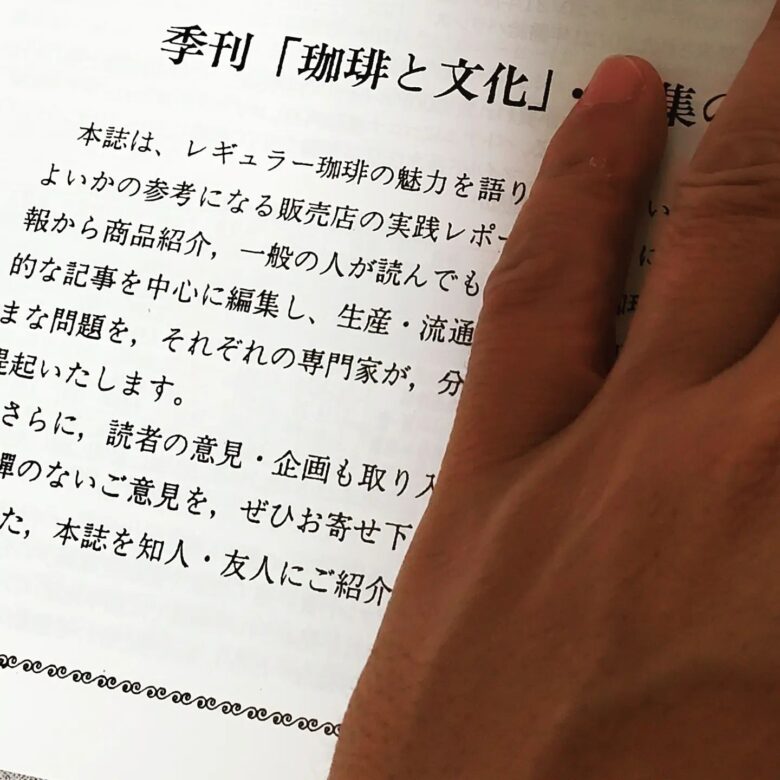 季刊「珈琲と文化」・集の
本誌は、レギュラー珈琲の魅力を語り い
よいかの参考になる販売店の実践レポー に
報から商品紹介，一般の人が読んでも
的な記事を中心に編集し、生産・流通
まな問題を，それぞれの専門家が，分
起いたします。
さらに，読者の意見・企画も取り入
憚のないご意見を，ぜひお寄せ下
た，本誌を知人・友人にご紹介